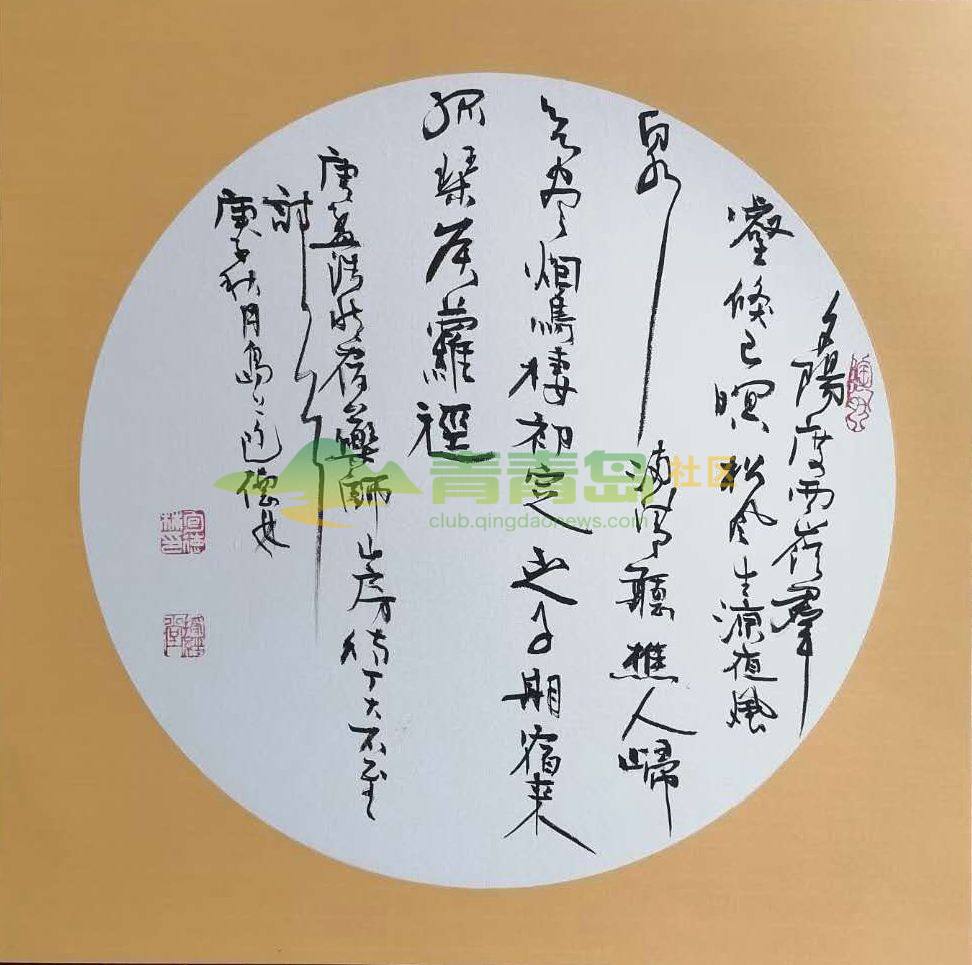 夕陽度西嶺羣
壑倏已暝松风生凉夜風
泉滿清聽樵人歸
欲尽烟鳥棲初定之子期宿来
孤琴候蘿徑
唐孟浩然宿業師山房待丁大不至
討
庚子秋月島上德林
青青岛社区
club.qingdaonews.com